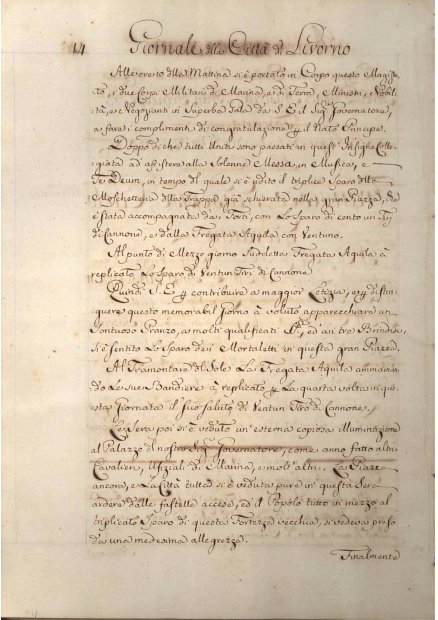 14 Giornale della Città di Livorno
Alle ore otto della Mattina si è portato in Corpo questo Magist,,
to, i due Corpi Militari di Marina, e di Terra, Ministri, Nobil,,
tà, e Negozianti in Superba Gala da S. E. il Sig.r Governatore,
a fare i complimenti di congratulazione p il Nato Principe.
Doppo di che tutti Uniti sono passati in quest' Insigne Colle,,
giata ad assistere alla Solenne Messa, in Musica, e
Te Deum, in tempo del quale si è udito il triplice Sparo della
Moschetteria della Truppa già schierata nella gran Piazza, che
è stata accompagnata dai Forti, con Lo Sparo di cento un Tiri
di Cannone, e dalla Fregata Aquila con Ventuno.
Al punto di Mezzo giorno Suddetta Fregata Aquila à
replicato Lo Sparo di Ventun Tiri di Cannone
Quindi S. E. p contribuire a maggior Letizia, e p distin,,
guere questo memorabil Giorno à voluto apparecchiare un
Sontuoso Pranzo, a molti qualificati ed ai tre Brindisi
si è sentito Lo Sparo dei Mortaletti in questa gran Piazza.
Al Tramontare del Sole La Fregata Aquila ammainan,,
do Le sue Bandiere à replicato p La quarta volta in que,,
sta Giornata il suo saluto di Ventun Tiro di Cannone.
La Sera poi si è veduto un' esterna copiosa illuminazione
al Palazzo di nostro Sig.r Governatore, come anno fatto altri
Cavalieri, Ufiziali di Marina, e molt' altri. La Piazza
ancora, e La Città tutta si è veduta pure in questa Sera
ardere dalle fastella accese, ed il Popolo tutto in mezzo al
triplicato Sparo di questa Fortezza vecchia, si vedeva preso
da una medesima allegrezza.
Finalmente